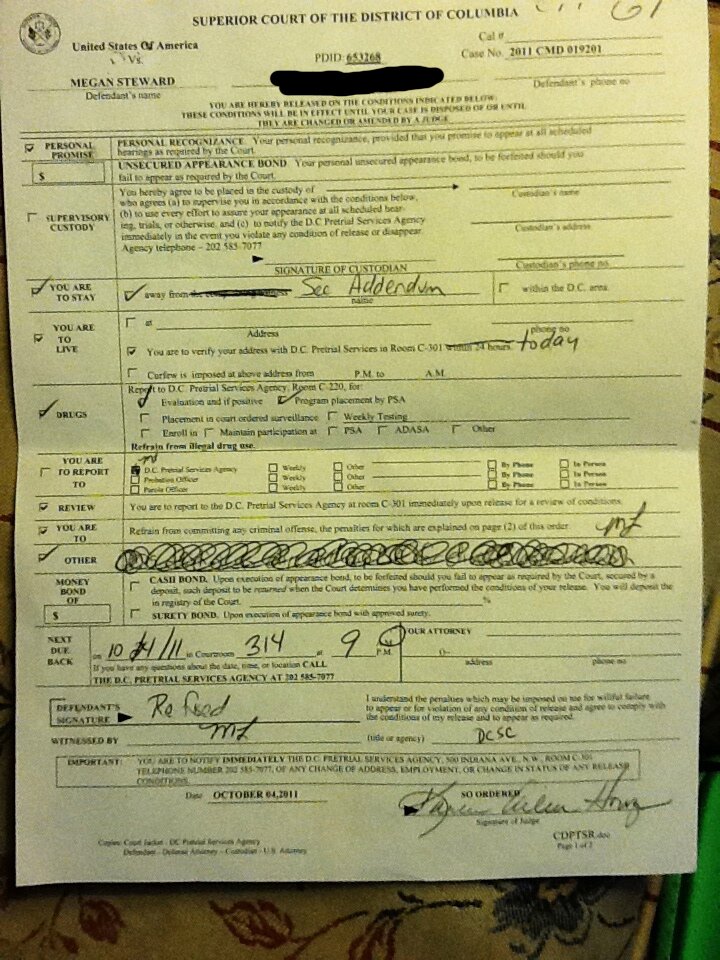 SUPERIOR COURT OF THE DISTRICT OF COLUMBIA
United States Of America
Vs.
PDID: 653268
Cal #
Case No. 2011 CMD 019201
MEGAN STEWARD
Defendant's name
Defendant's phone no
YOU ARE HEREBY RELEASED ON THE CONDITIONS INDICATED BELOW.
THESE CONDITIONS WILL BE IN EFFECT UNTIL YOUR CASE IS DISPOSED OF OR UNTIL
THEY ARE CHANGED OR AMENDED BY A JUDGE.
PERSONAL PROMISE
PERSONAL RECOGNIZANCE. Your personal recognizance, provided that you promise to appear at all scheduled
hearings as required by the Court.
$
UNSECURED APPEARANCE BOND. Your personal unsecured appearance bond, to be forfeited should you
fail to appear as required by the Court.
SUPERVISORY CUSTODY
You hereby agree to be placed in the custody of
who agrees (a) to supervise you in accordance with the conditions below,
(b) to use every effort to assure your appearance at all scheduled hear-
ing, trials, or otherwise, and (c) to notify the D.C Pretrial Services Agency
immediately in the event you violate any condition of release or disappear.
Agency telephone - 202 585-7077
Custodian's name
Custodian's address
SIGNATURE OF CUSTODIAN
Custodian's phone no.
YOU ARE TO STAY
away from the complaining witness See Addendum
name
within the D.C. area.
YOU ARE TO LIVE
at
Address
phone no
You are to verify your address with D.C. Pretrial Services in Room C-301 within 24 hours. today
Curfew is imposed at above address from P.M. to A.M.
DRUGS
Report to D.C. Pretrial Services Agency, Room C-220, for:
Evaluation and if positive Program placement by PSA
Placement in court ordered surveillance Weekly Testing
Enroll in Maintain participation at PSA ADASA Other
Refrain from illegal drug use.
YOU ARE TO REPORT TO
D.C. Pretrial Services Agency Weekly Other By Phone In Person
Probation Officer Weekly Other By Phone In Person
Parole Officer Weekly Other By Phone In Person
REVIEW
You are to report to the D.C. Pretrial Services Agency at room C-301 immediately upon release for a review of conditions.
YOU ARE TO
Refrain from committing any criminal offense, the penalties for which are explained on page (2) of this order.
OTHER
MONEY BOND OF
$
CASH BOND. Upon execution of appearance bond, to be forfeited should you fail to appear as required by the Court, secured by a
deposit, such deposit to be returned when the Court determines you have performed the conditions of your release. You will deposit
in registry of the Court. %
SURETY BOND. Upon execution of appearance bond with approved surety.
NEXT DUE BACK
in Courtroom 314 at 9
P.M.
If you have any questions about the date, time, or location CALL
THE D.C. PRETRIAL SERVICES AGENCY AT 202 585-7077
YOUR ATTORNEY
address phone no
DEFENDANT'S SIGNATURE
I understand the penalties which may be imposed on me for willful failure
to appear or for violation of any condition of release and agree to comply with
the conditions of my release and to appear as required.
WITNESSED BY
(title or agency) DCSC
IMPORTANT: YOU ARE TO NOTIFY IMMEDIATELY THE D.C. PRETRIAL SERVICES AGENCY, 500 INDIANA AVE., N.W., ROOM C-301
TELEPHONE NUMBER 202 585-7077, OF ANY CHANGE OF ADDRESS, EMPLOYMENT, OR CHANGE IN STATUS OF ANY RELEASE
CONDITIONS.
Date OCTOBER 04,2011
SO ORDERED
Signature of Judge
Copies: Court Jacket - DC Pretrial Services Agency
Defendant - Defense Attorney - Custodian - U.S. Attorney
CDPTSR.doc
Page 1 of 2